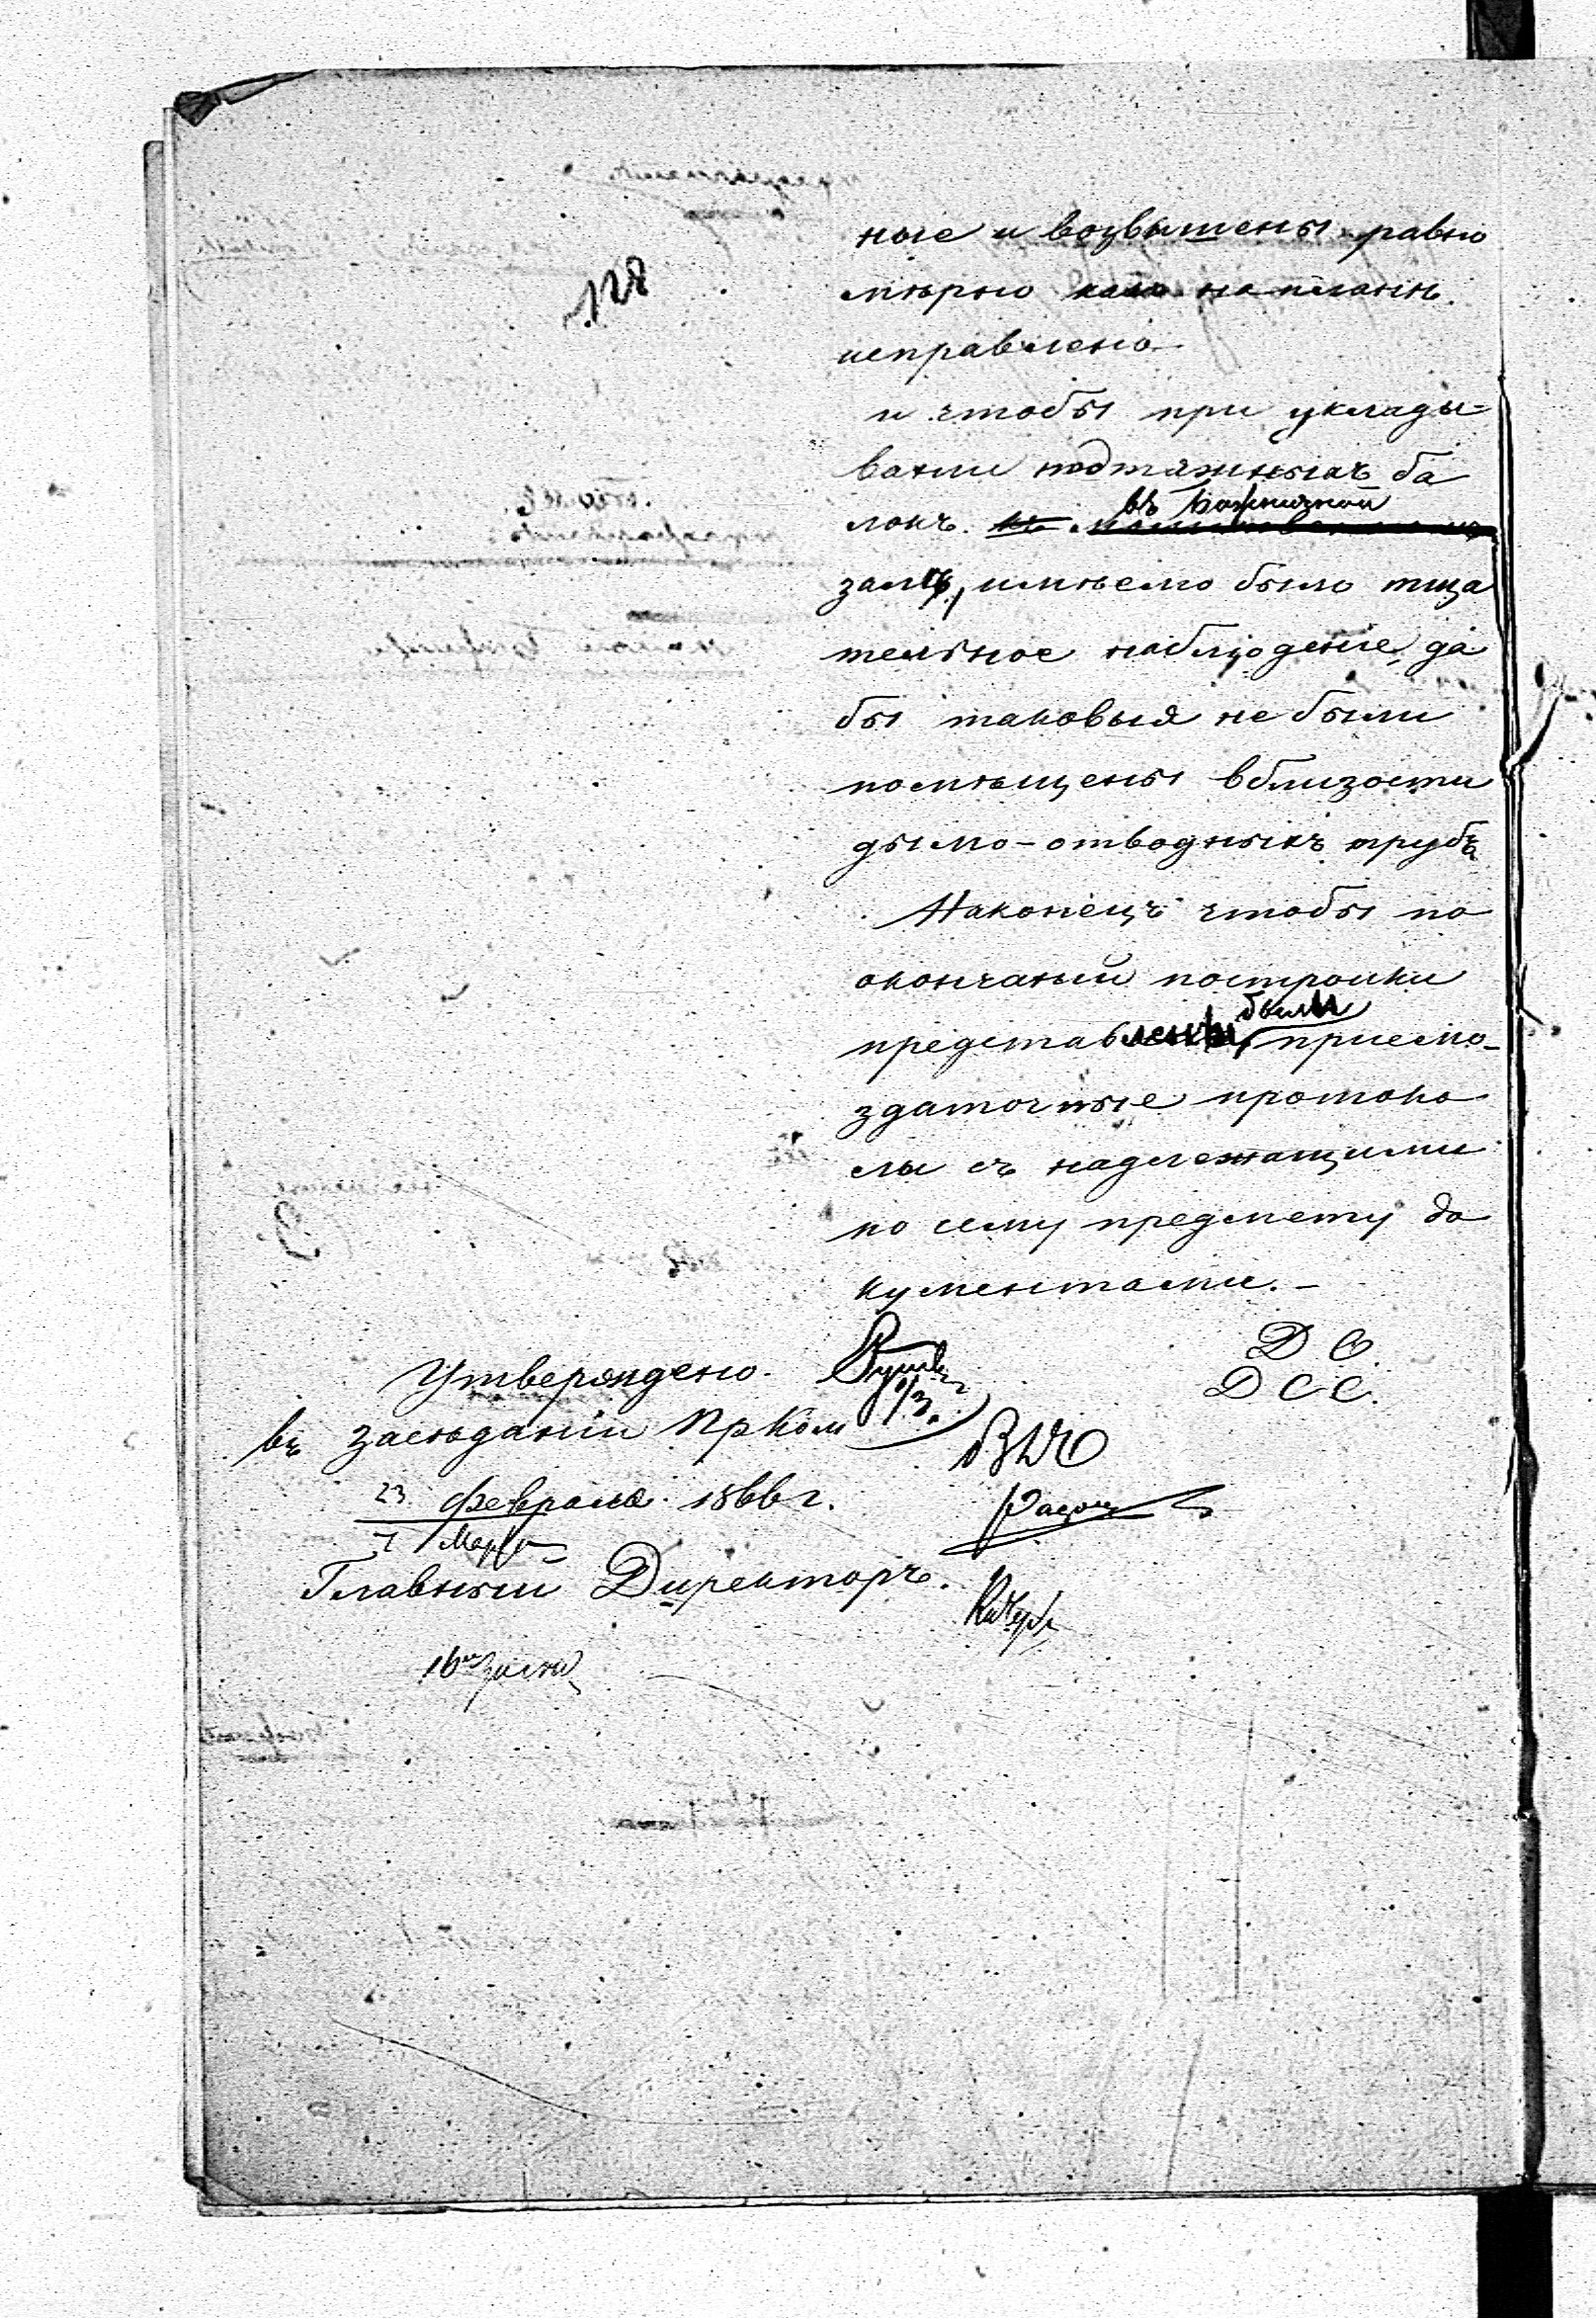 128
ные и возвышены равно
мѣрно како на планѣ
исправлено
и чтобы при уклады=
ваніи подтяжныхъ ба
локъ въ Божничной
залѣ, имѣемо было тща
тельное наблюденіе, да
бы таковыя не были
помѣщены вблизости
дымо-отводныхъ трубъ
Наконецъ чтобы по
окончаніи постройки
представлены были приемо-
здаточные протоко
лы съ надлежащими
по сему предмету до
кументами.-
Утверждено.
въ засѣданіи Пр Ком
23 Февраля 1866 г.
7 Марта
Главный Директоръ.
Д С.
Д С С.